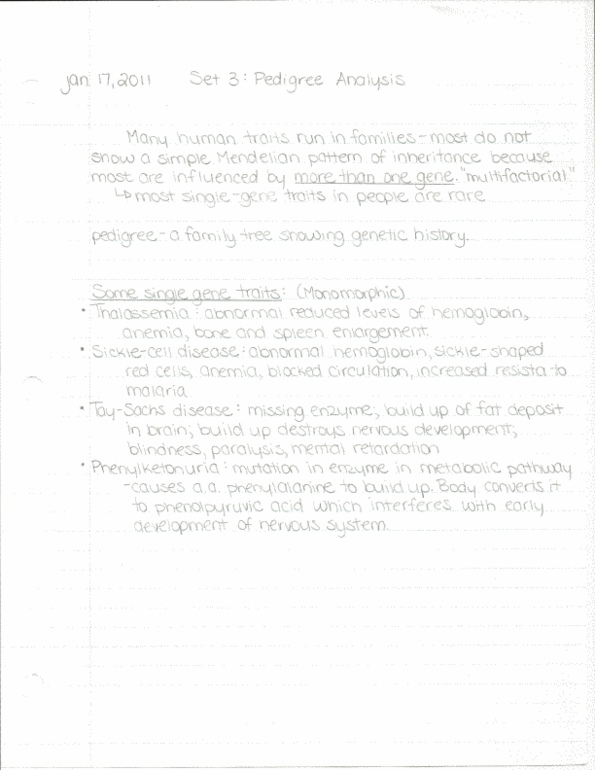 Jan 17, 2011 Set 3: Pedigree Analysis
Many human traits run in families - most do not
show a simple Mendelian pattern of inheritance because
most are influenced by more than one gene. "multifactorial"
↳ most single-gene traits in people are rare
pedigree - a family tree showing genetic history.
Some single gene traits: (Monomorphic)
• Thalassemia: abnormal reduced levels of hemoglobin,
anemia, bone and spleen enlargement.
• Sickle-cell disease: abnormal hemoglobin, sickle-shaped
red cells, anemia, blocked circulation, increased resista to
malaria
• Tay-Sachs disease: missing enzyme, build up of fat deposit
in brain; build up destroys nervous development,
blindness, paralysis, mental retardation
• Phenylketonuria: mutation in enzyme in metabolic pathway
-causes a.a. phenylalanine to build up. Body converts it
to phenolpyruvic acid which interferes with early
development of nervous system.